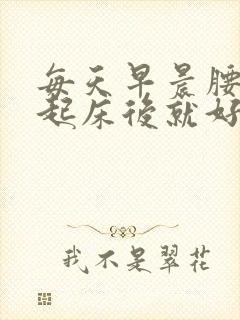 每天早晨腰
起床後就好
我不是翠花